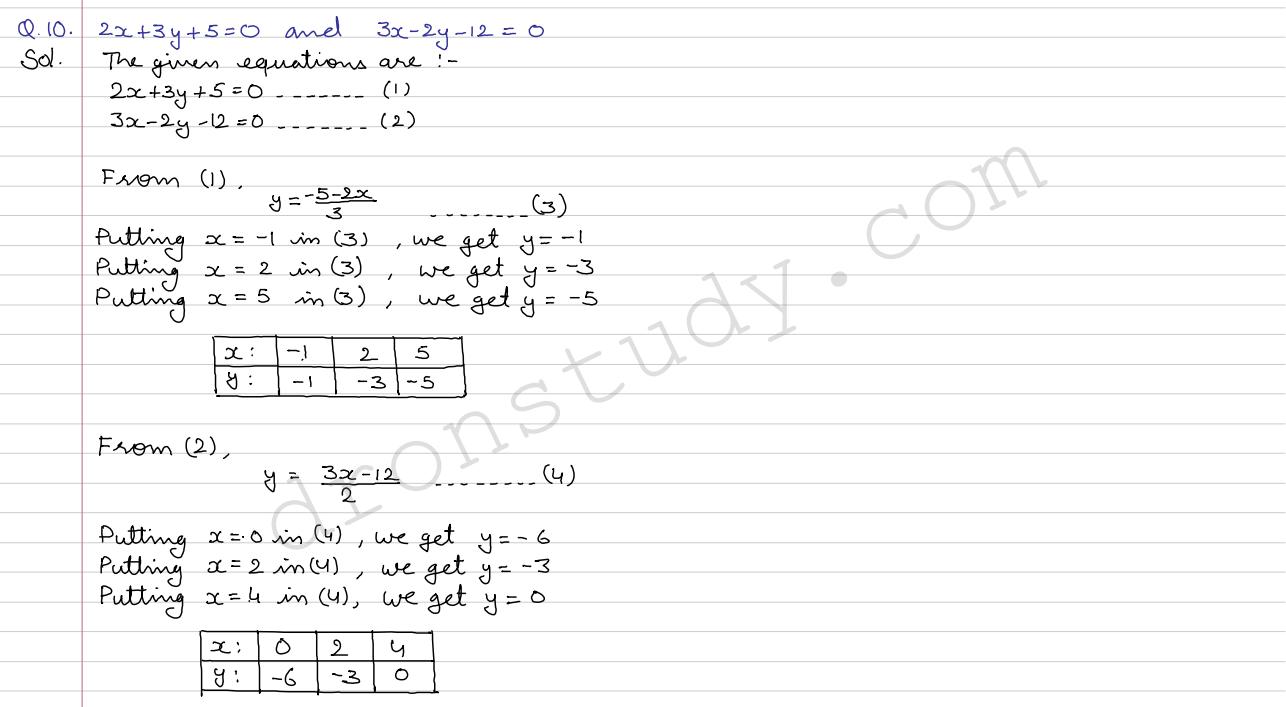 Q.10. 2x+3y+5=0 and 3x-2y-12=0
Sol. The given equations are :-
2x+3y+5=0 ------- (1)
3x-2y-12=0 ------- (2)
From (1),
y = (-5-2x)/3 -------- (3)
Putting x = -1 in (3), we get y = -1
Putting x = 2 in (3), we get y = -3
Putting x = 5 in (3), we get y = -5
x: -1 2 5
y: -1 -3 -5
From (2),
y = (3x-12)/2 --------- (4)
Putting x=0 in (4), we get y = -6
Putting x=2 in (4), we get y = -3
Putting x=4 in (4), we get y = 0
x: 0 2 4
y: -6 -3 0
dronstudy.com